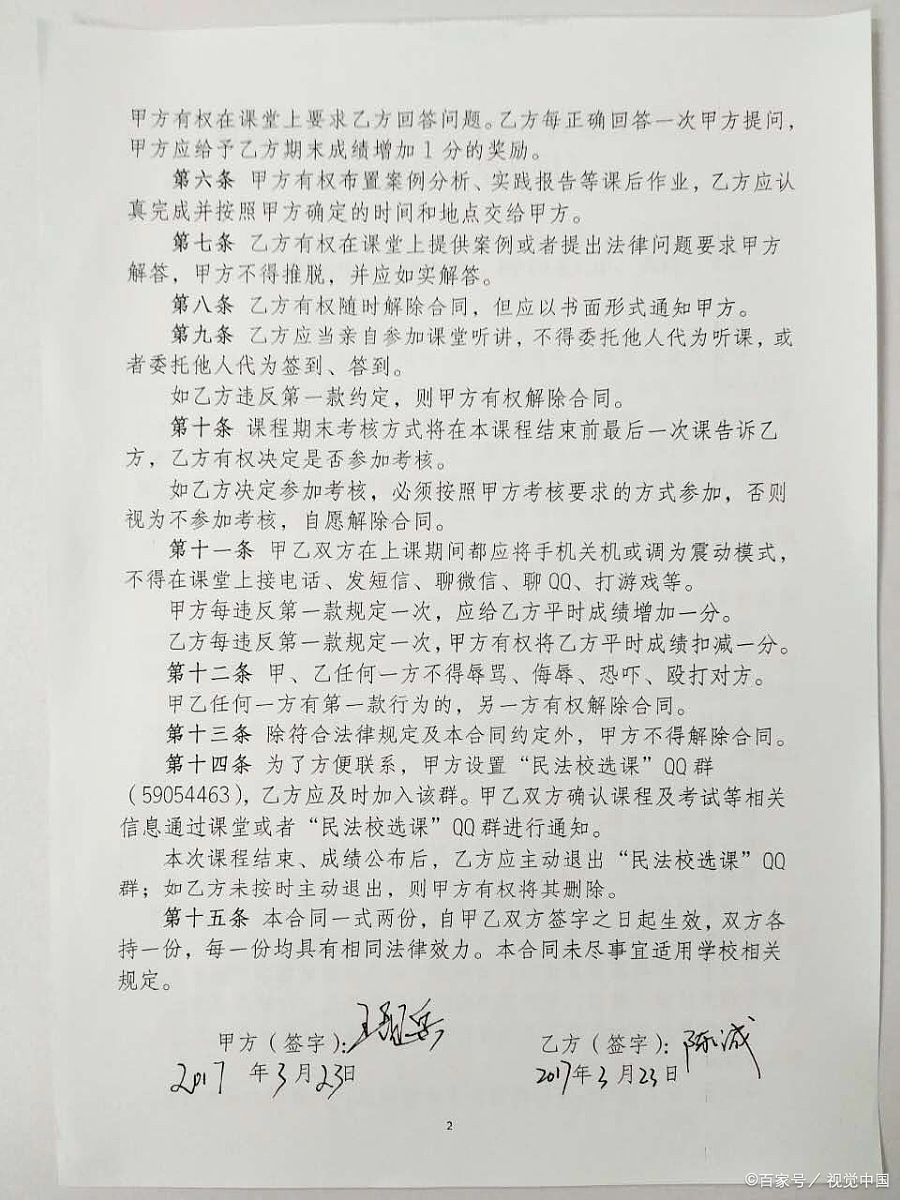 甲方有权在课堂上要求乙方回答问题。乙方每正确回答一次甲方提问，
甲方应给予乙方期末成绩增加1分的奖励。
第六条 甲方有权布置案例分析、实践报告等课后作业，乙方应认
真完成并按照甲方确定的时间和地点交给甲方。
第七条 乙方有权在课堂上提供案例或者提出法律问题要求甲方
解答，甲方不得推脱，并应如实解答。
第八条 乙方有权随时解除合同，但应以书面形式通知甲方。
第九条 乙方应当亲自参加课堂听讲，不得委托他人代为听课，或
者委托他人代为签到、答到。
如乙方违反第一款约定，则甲方有权解除合同。
第十条 课程期末考核方式将在本课程结束前最后一次课告诉乙
方，乙方有权决定是否参加考核。
如乙方决定参加考核，必须按照甲方考核要求的方式参加，否则
视为不参加考核，自愿解除合同。
第十一条 甲乙双方在上课期间都应将手机关机或调为震动模式，
不得在课堂上接电话、发短信、聊微信、聊QQ、打游戏等。
甲方每违反第一款规定一次，应给乙方平时成绩增加一分。
乙方每违反第一款规定一次，甲方有权将乙方平时成绩扣减一分。
第十二条 甲、乙任何一方不得辱骂、侮辱、恐吓、殴打对方。
甲乙任何一方有第一款行为的，另一方有权解除合同。
第十三条 除符合法律规定及本合同约定外，甲方不得解除合同。
第十四条 为了方便联系，甲方设置“民法校选课”QQ群
（59054463），乙方应及时加入该群。甲乙双方确认课程及考试等相关
信息通过课堂或者“民法校选课”QQ群进行通知。
本次课程结束、成绩公布后，乙方应主动退出“民法校选课”QQ
群；如乙方未按时主动退出，则甲方有权将其删除。
第十五条 本合同一式两份，自甲乙双方签字之日起生效，双方各
持一份，每一份均具有相同法律效力。本合同未尽事宜适用学校相关
规定。
甲方（签字）： 乙方（签字）：陈诚
2017年3月23日 2017年3月23日
2
©百家号／视觉中国